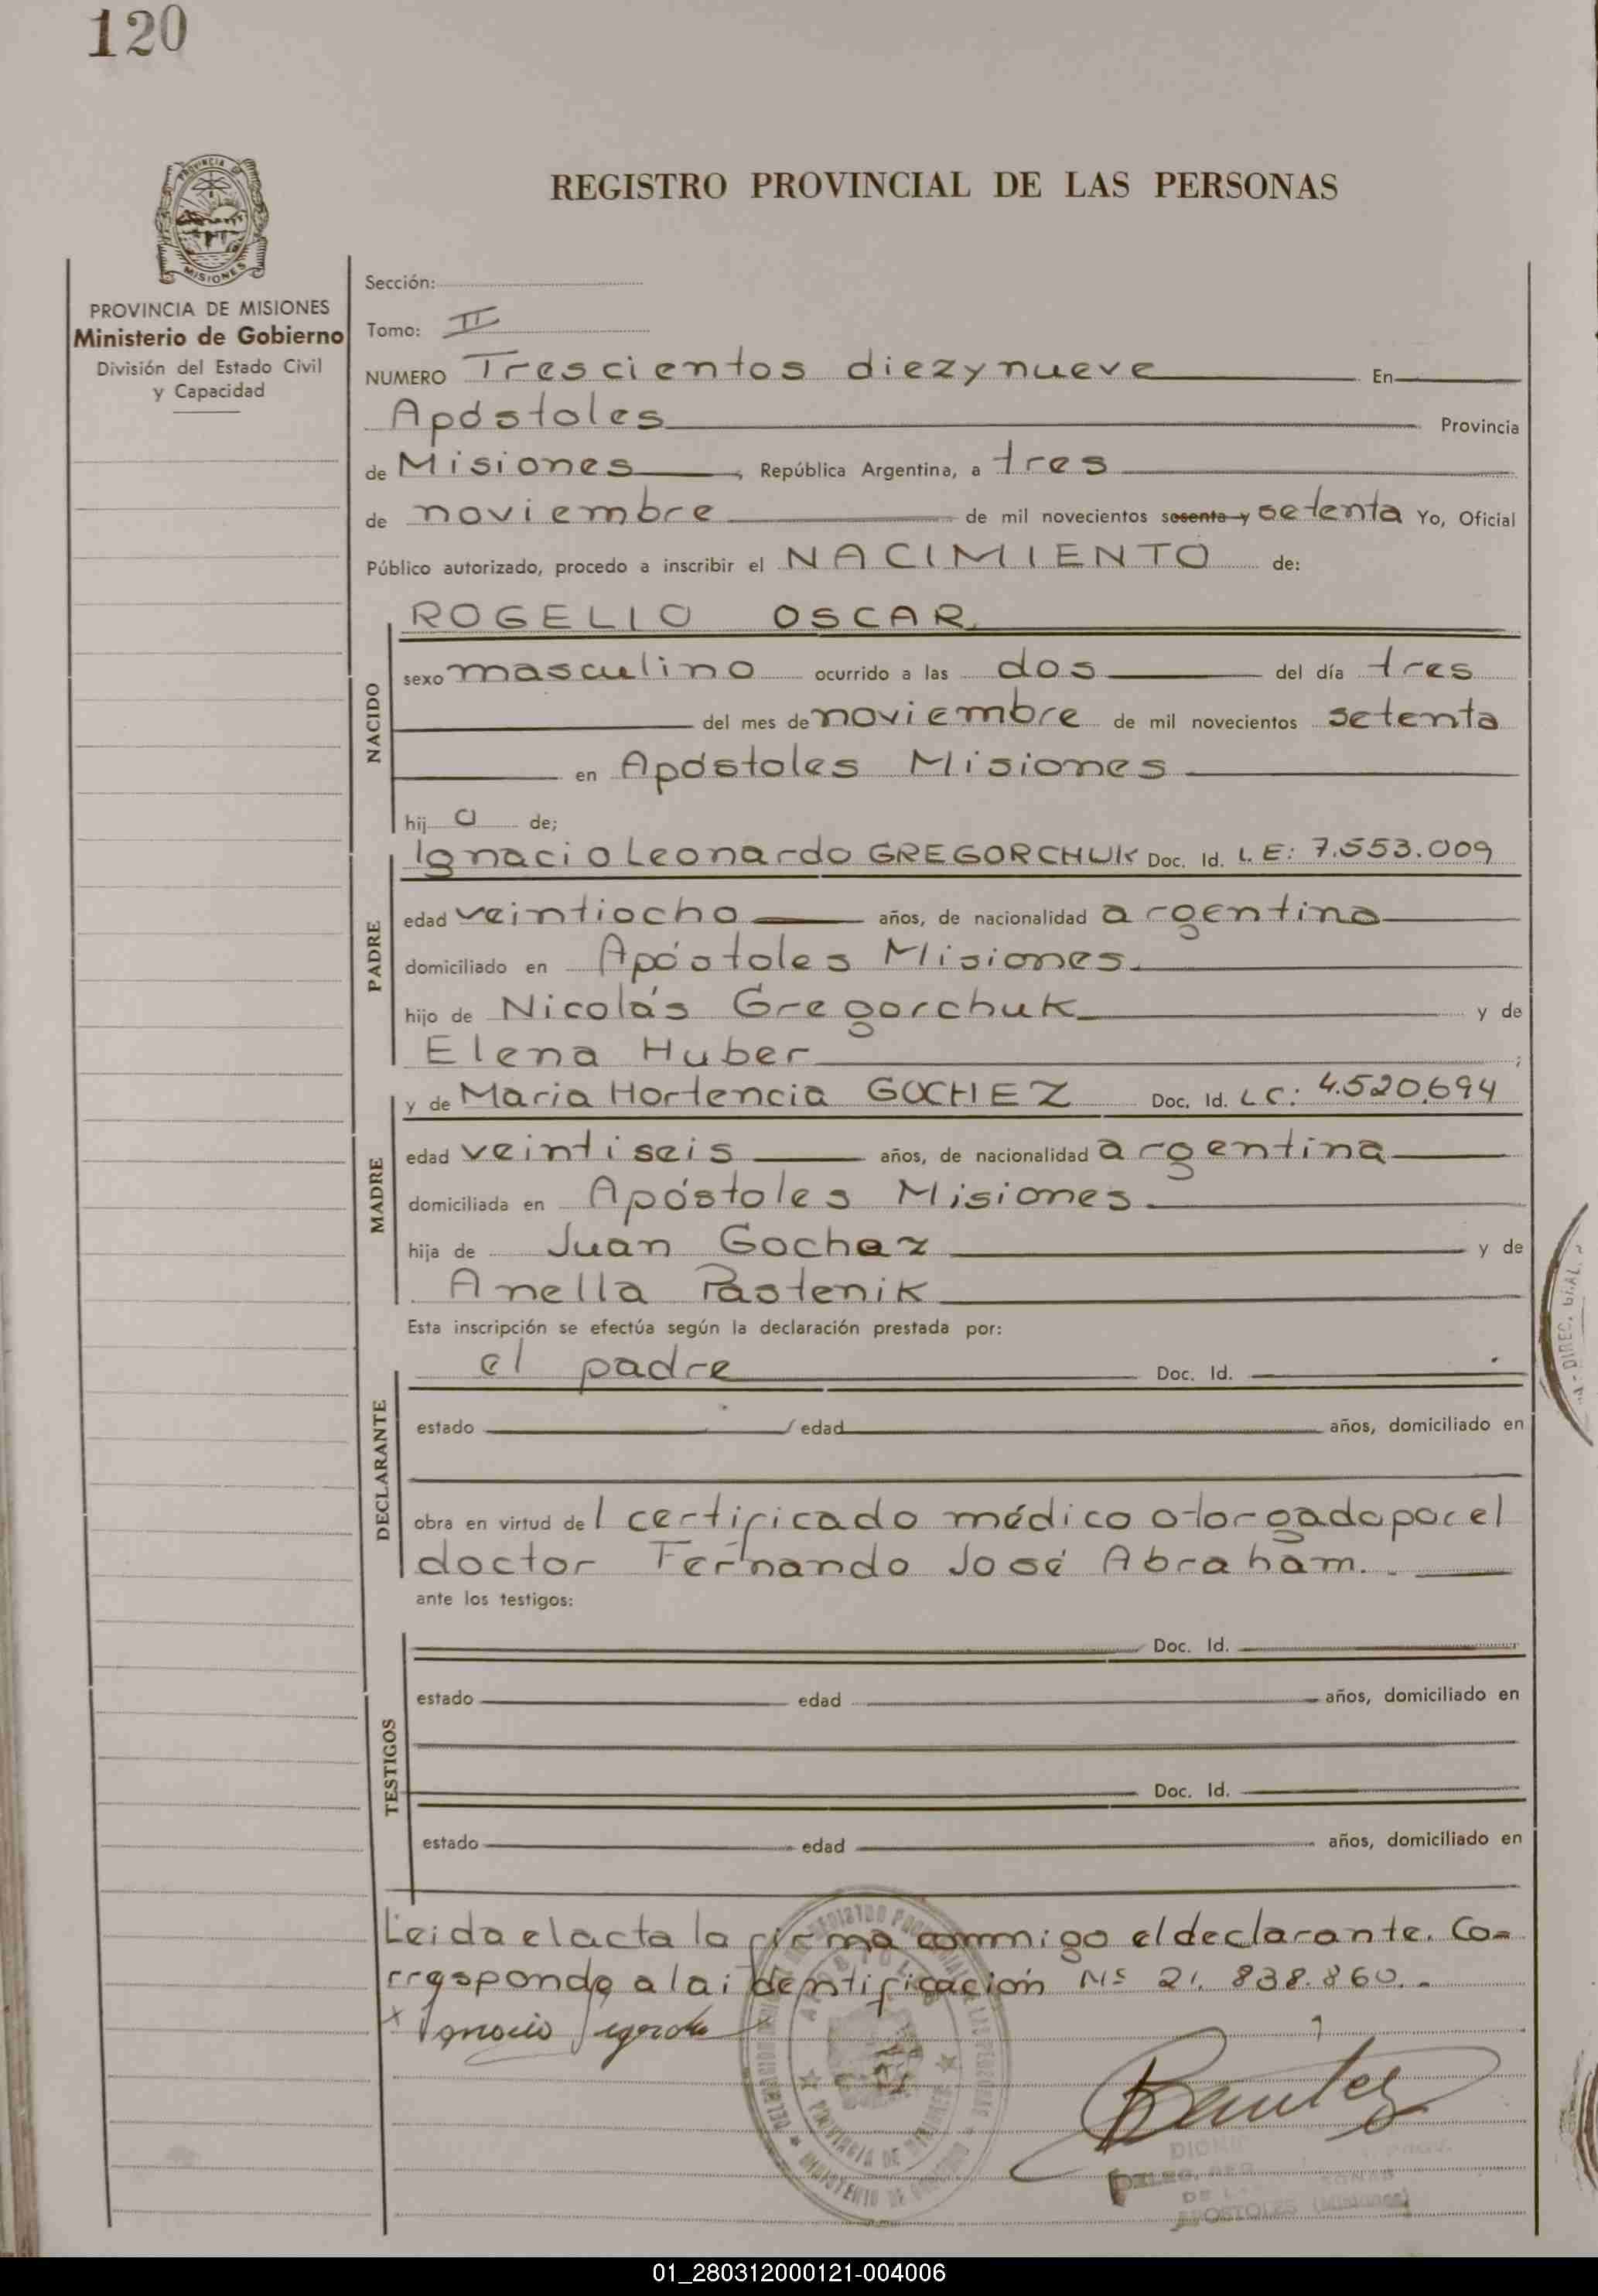 120
PROVINCIA
MISIONES
PROVINCIA DE MISIONES
Ministerio de Gobierno
División del Estado Civil
y Capacidad
REGISTRO PROVINCIAL DE LAS PERSONAS
Sección:
Tomo: II
NUMERO Trescientos diezynueve En
Apóstoles Provincia
de Misiones, República Argentina, a tres
de noviembre de mil novecientos sesenta y setenta Yo, Oficial
Público autorizado, procedo a inscribir el NACIMIENTO de:
NACIDO
ROGELIO OSCAR
sexo masculino ocurrido a las dos del día tres
del mes de noviembre de mil novecientos setenta
en Apóstoles Misiones
hij o de;
PADRE
Ignacio Leonardo GREGORCHUK Doc. Id. L.E: 7.553.009
edad veintiocho años, de nacionalidad argentina
domiciliado en Apóstoles Misiones
hijo de Nicolás Gregorchuk y de
Elena Huber ;
MADRE
y de Maria Hortencia GOCHEZ Doc. Id. LC: 4.520.694
edad veintiseis años, de nacionalidad argentina
domiciliada en Apóstoles Misiones
hija de Juan Gochez y de
Anella Pastenik
Esta inscripción se efectúa según la declaración prestada por:
DECLARANTE
el padre Doc. Id.
estado edad años, domiciliado en
obra en virtud del certificado médico otorgado por el
doctor Fernando José Abraham.
ante los testigos:
TESTIGOS
Doc. Id.
estado edad años, domiciliado en
Doc. Id.
estado edad años, domiciliado en
Leida el acta la firma conmigo el declarante. Co=
rresponde a la identificación Nº 21.838.860.
x Ignacio
PROVINCIA DE MISIONES
MINISTERIO DE GOBIERNO
Benitez
APOSTOLES (Misiones)
DIREC. GRAL.
01_280312000121-004006